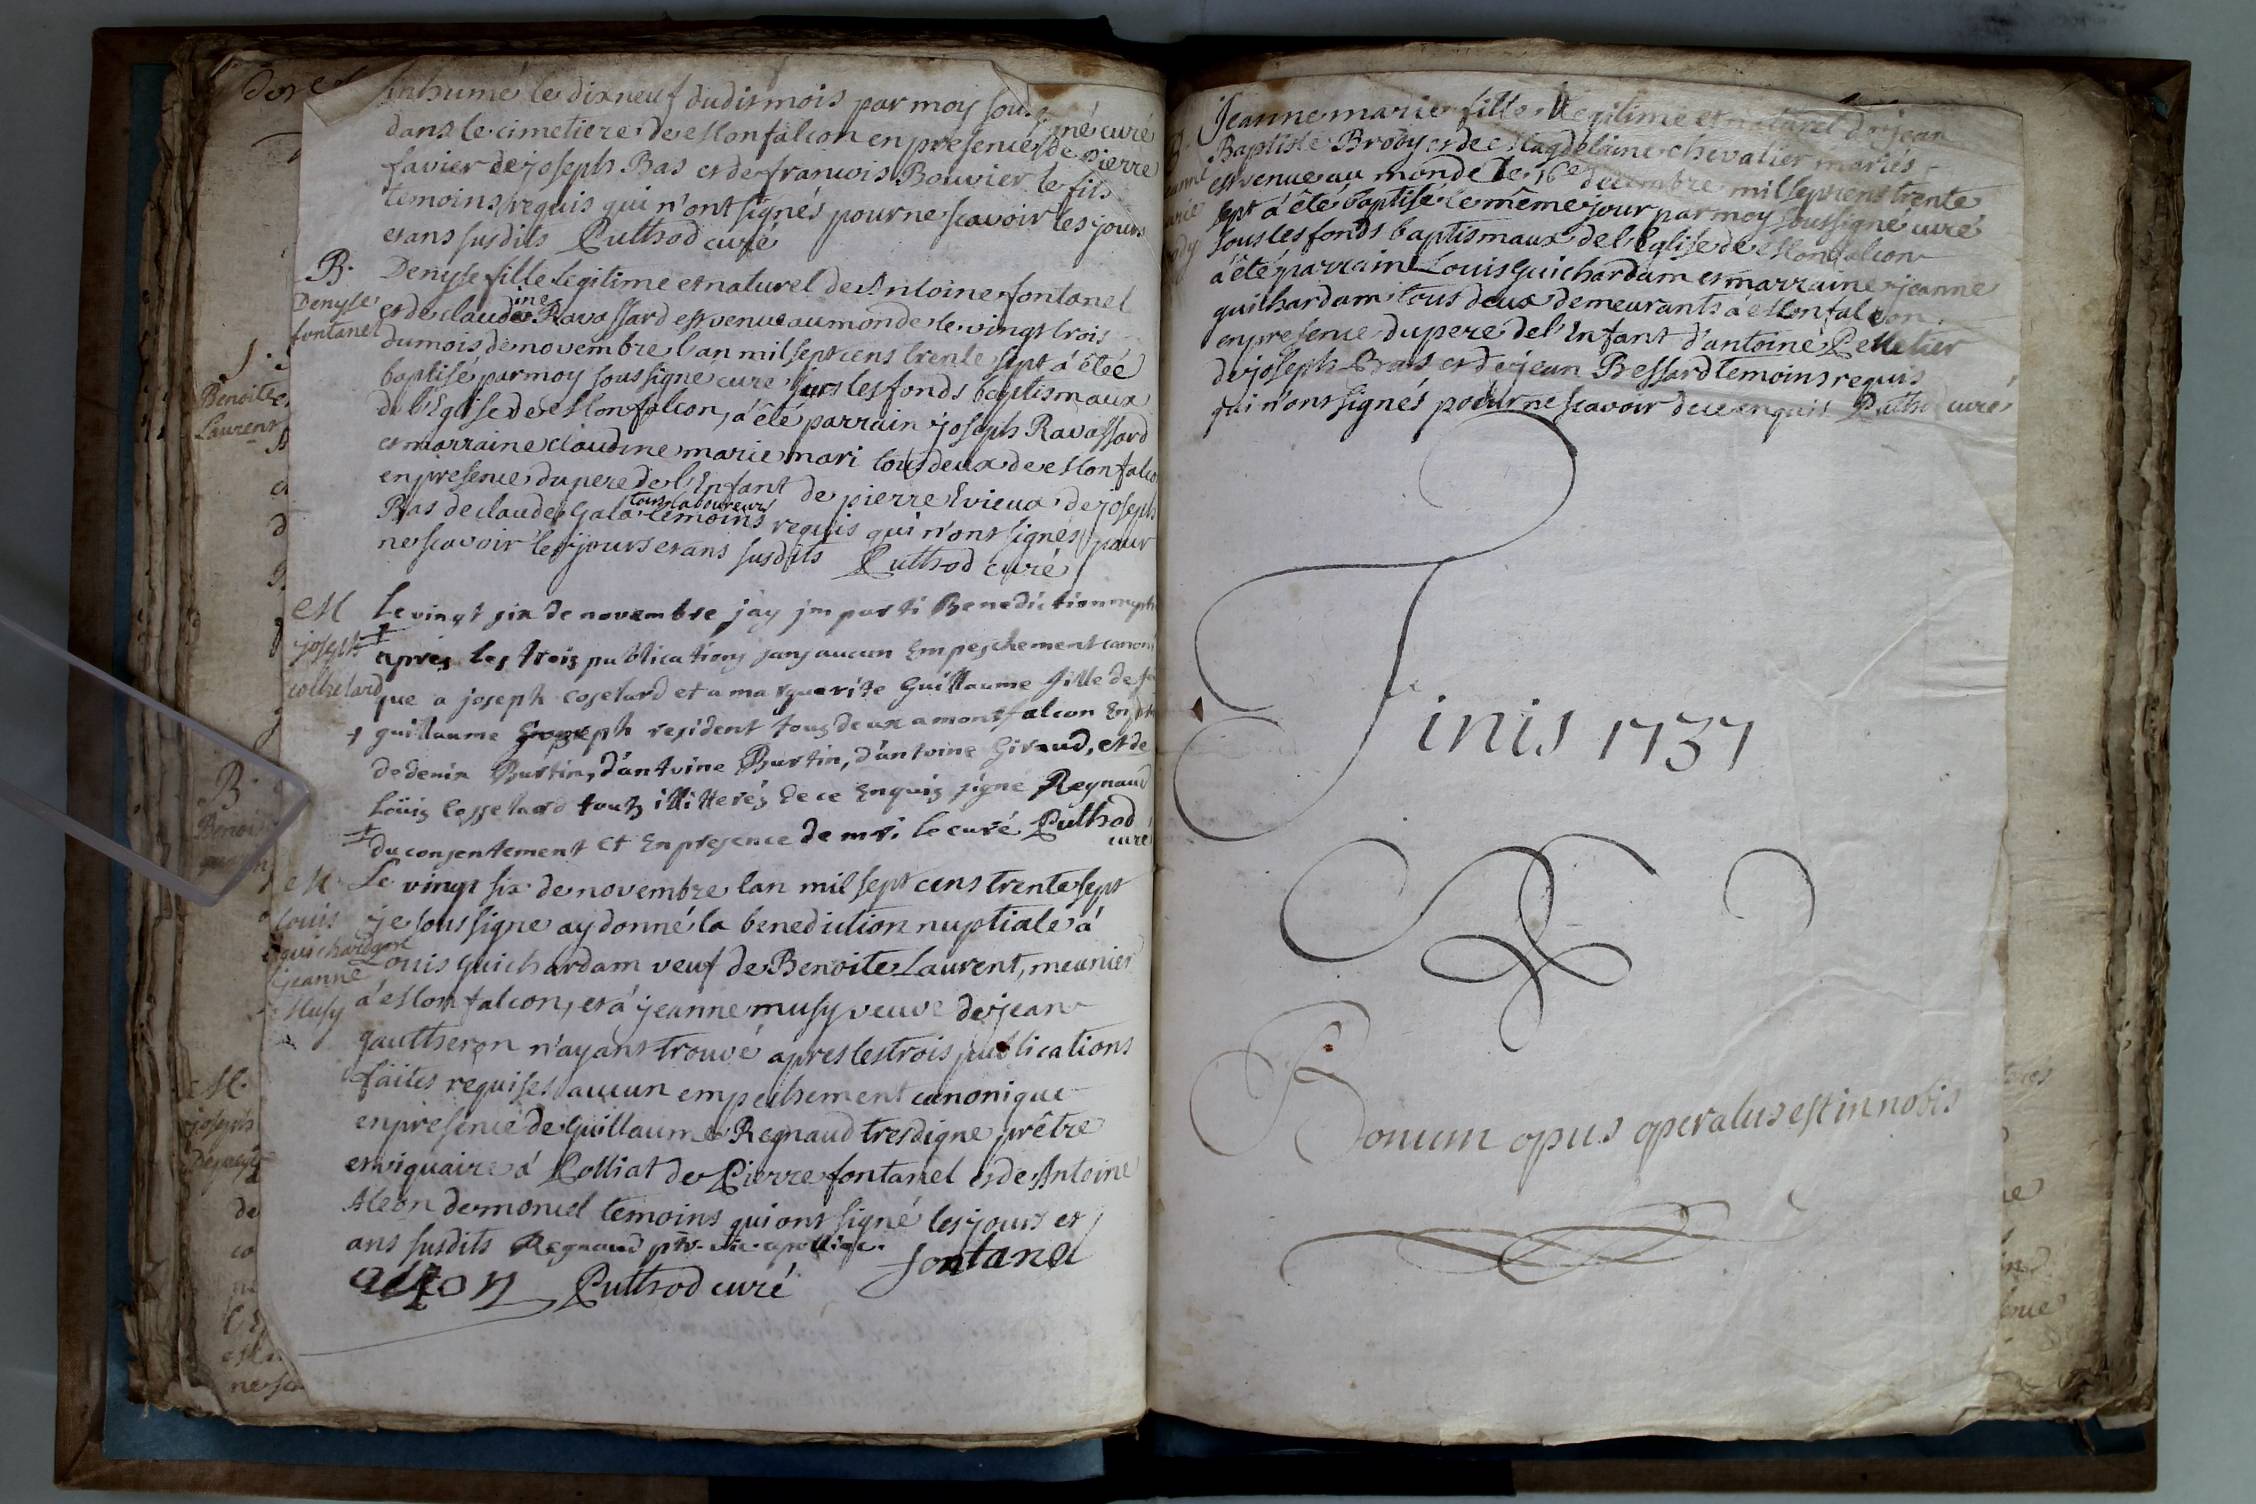 inhumé le dixneuf dudit mois par moy sous
né curé
dans le cimetiere de Monfalcon en presence de Pierre
favier de joseph Bas et de francois Bouvier le fils
temoins requis qui n'ont signés pour ne scavoir les jours
et ans susdits Puthod curé
B.
Denyse
fontanel
Denyse fille legitime et naturel de Antoine fontanel
et de claudine Ravassard est venue au monde le vingt trois
du mois de novembre l'an mil sept cens trente sept á été
baptise par moy soussigne curé sur les fonds baptismaux
de l'Eglise de Monfalcon, á été parrain joseph Ravassard
et marraine claudine marie mari tous deux de Monfalco
en presence du pere de l'Enfant de pierre Evieux de joseph
tous laboureurs
Bas de claude Gala temoins requis qui n'ont signés pour
ne scavoir les jours et ans susdits Puthod curé
M
joseph
cothelard
Le vingt six de novembre jay jmparti Benediction nupti
aprés les trois publications sans aucun Empeschement canoni
que a joseph coselard et a marguerite Guillaume fille de
guillaume resident tous deux a montfalcon En
de denis Burtin, d'antoine Burtin, d'antoine Giraud, et de
Loüis Cosselard touts illitterés de ce Enquis signe Regnaud
du consentement et En presence de mr. le curé Puthod
curé
M
Louis
guichardam
jeanne
Musy
Le vingt six de novembre lan mil sept cens trente sept
je soussigne ay donné la benediction nuptiale á
Louis guichardam veuf de Benoite Laurent, meunier
á Monfalcon, et á jeanne musy veuve de jean
gautheron n'ayant trouvé apres les trois publications
faites requises aucun empechement canonique
en presence de Guillaume Regnaud tres digne prêtre
et viquaire á Polliat de Pierre fontanel et de Antoine
Aleon de moncel temoins qui ont signé les jours et
ans susdits Regnaud ptr. vic. a polliat.
fontanel
aleon Puthod curé
Jeanne marie fille legitime et naturel de jean
Baptiste Brody et de Magdelaine chevalier mariés
est venue au monde le 16e decembre mil sept cens trente
sept á été baptisé le même jour par moy soussigné curé
sous les fonds baptismaux de l'Eglise de Monfalcon
á été parrain Louis Guichardam et marraine jeanne
guichardam tous deux demeurants á Monfalcon
en presence du pere de l'Enfant d'antoine Pelletier
de joseph Bas et de jean Bessard temoins requis
qui n'ont signés pour ne scavoir de ce enquis Puthod curé
Finis 1737
Bonum opus operatus est in nobis